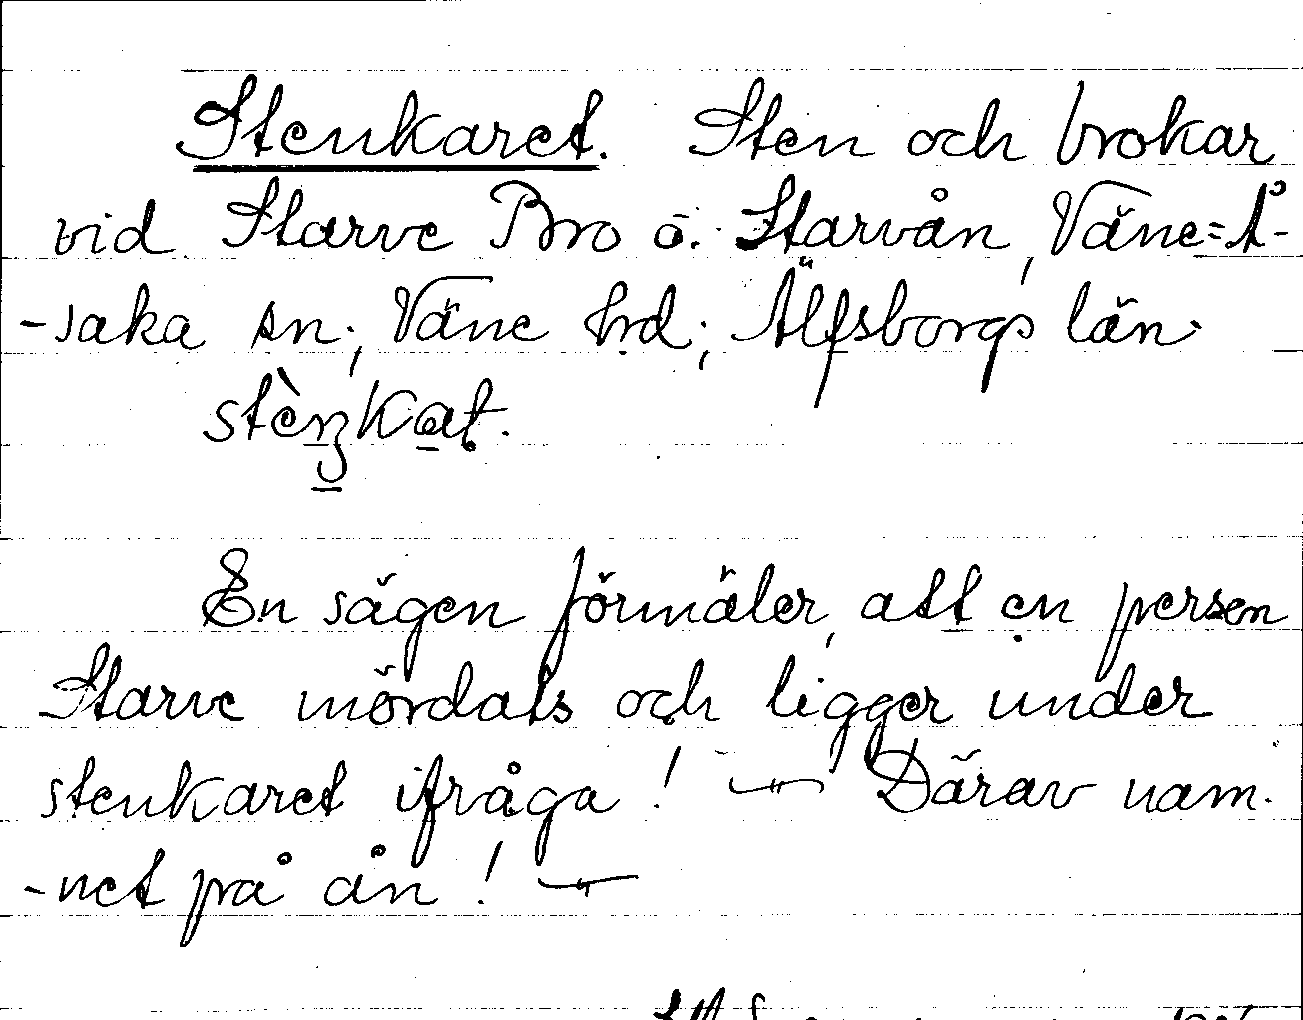 Stenkaret. Sten och brokar
vid Starve Bro ö. Starvån, Väne=Å-
-saka sn; Väne hrd; Älfsborgs län.
En sägen förmäler, att en person
Starve mördats och ligger under
stenkaret ifråga! — Därav nam-
-net på ån! —